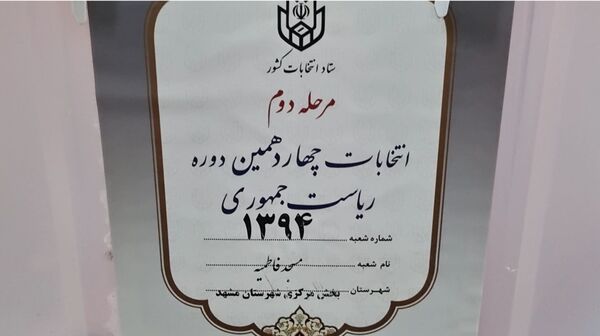 ستاد انتخابات کشور
مرحله دوم
انتخابات چهاردهمین دوره
ریاست جمهوری
شماره شعبه ۱۳۹۴
نام شعبه مسجد فاطمیه
شهرستان بخش مرکزی شهرستان مشهد